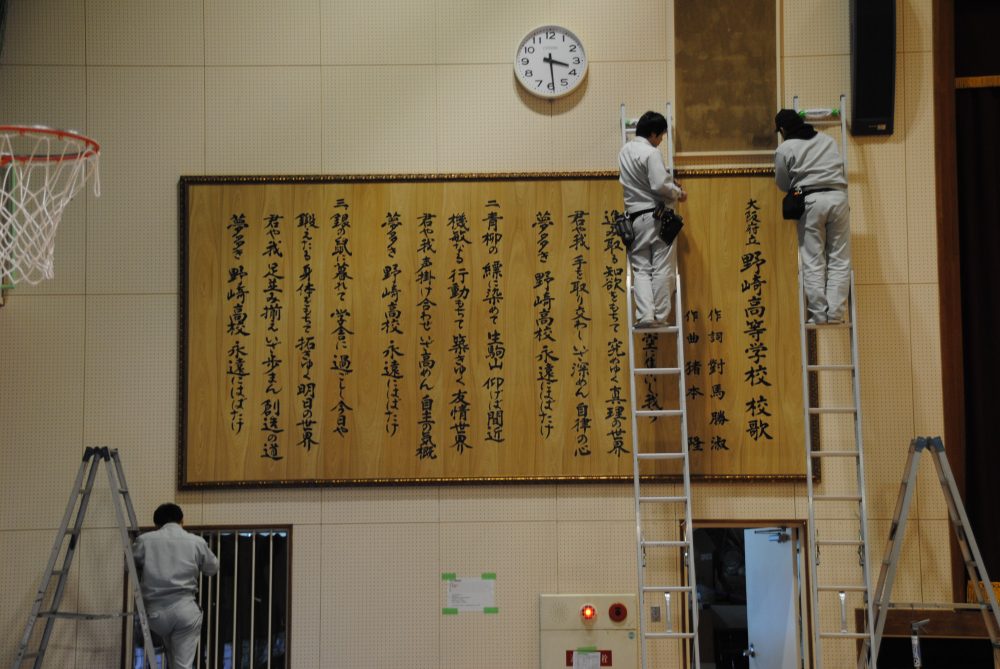 大阪府立 野崎高等学校 校歌
作詞 對馬勝淑
作曲 猪本 隆
空に集い し我
進取も知欲をもて 究めゆく真理の世界
君や我 手を取り交わし いざ深めん 自律の心
夢多き 野崎高校 永遠にはばたけ
二、青柳の 縹に染めて 生駒山 仰げば間近
機敏なる 行動もちて 築きゆく 友情世界
君や我 声掛け合わせ いざ高めん 自主の気概
夢多き 野崎高校 永遠にはばたけ
三、銀の鼠に暮れて 学舎に 過ごし今日や
鍛えたる 身体をもちて 拓きゆく 明日の世界
君や我 足並み揃え いざ歩まん 創造の道
夢多き 野崎高校 永遠にはばたけ
12
1
2
3
4
5
6
7
8
9
10
11